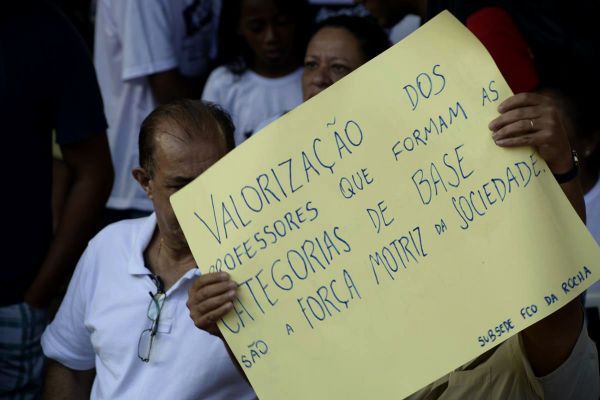 VALORIZAÇÃO DOS
PROFESSORES QUE FORMAM AS
CATEGORIAS DE BASE
SÃO A FORÇA MOTRIZ DA SOCIEDADE.
SUBSEDE FCO DA ROCHA